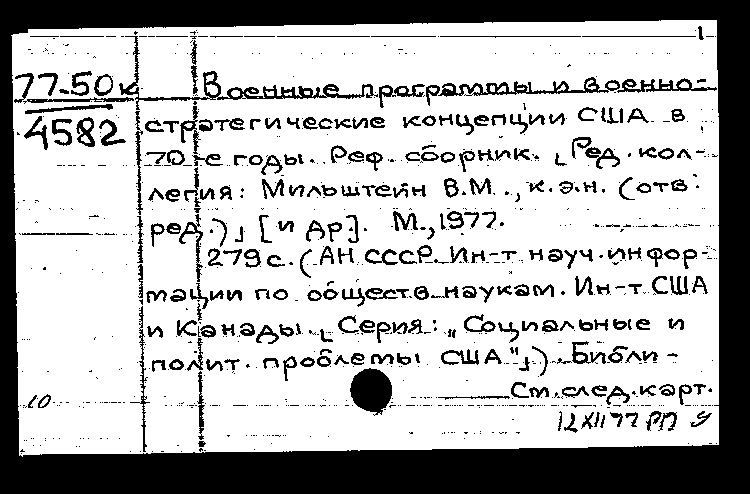 1
77-50к
4582
Военные программы и военно-
стратегические концепции США в
70-е годы. Реф. сборник. [Ред. кол-
легия: Мильштейн В.М., к.э.н. (отв.
ред.)] [и др]. М., 1977.
279 с. (АН СССР. Ин-т науч. инфор-
мации по обществ. наукам. Ин-т США
и Канады. [Серия: „Социальные и
полит. проблемы США"]). Библи-
См. след. карт.
10
12 XII 77